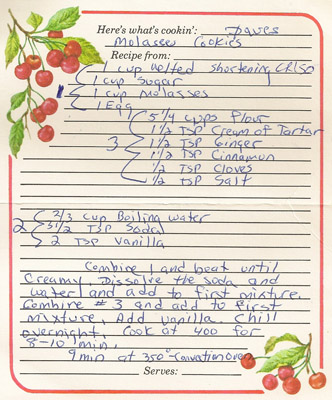 Here's what's cookin': Daves
Molasses Cookies
Recipe from:
1 cup melted shortening CRISO
1 cup Sugar
1 1 cup Molasses
1 Egg
5 1/4 cups flour
1 1/2 TSP Cream of Tartar
3 1 1/2 TSP Ginger
1 1/2 TSP Cinnamon
1/2 TSP Cloves
1/2 TSP Salt
2/3 cup Boiling water
2 3 1/2 TSP Soda
2 TSP Vanilla
Combine 1 and beat until
Creamy. Dissolve the soda and
water and add to first mixture.
Combine #3 and add to first
mixture. Add vanilla. Chill
overnight. Cook at 400 for
8-10 min.
9 min at 350°-Convation Oven
Serves: